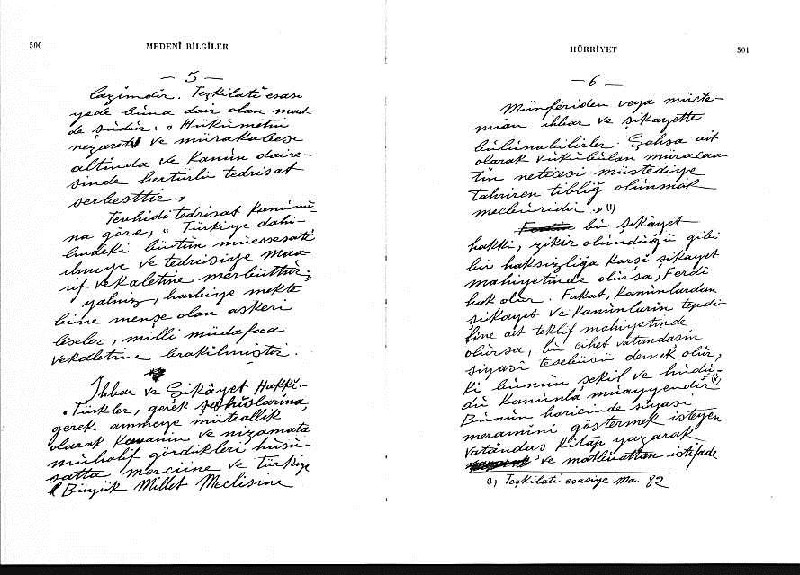 500
MEDENÎ BİLGİLER
— 5 —
lazimdir. Teşkilatı esasi
yede buna dair olan mad
de şudur: "Hükümetin
nezareti ve murakabesi
altında ve kanun daire-
sinde her türlü tedrisat
serbesttir."
Tevhidi tedrisat kanunu-
na göre, "Türkiye dahi-
lindeki bütün müessesatı
ilmiye ve tedrisiye maa-
rif vekaletine merbuttur;
yalnız, harbiye mekte
bine menşe olan askeri
liseler, milli müdafaa
vekaletine bırakılmıştır.
İhbar ve Şikâyet Hakkı-
"Türkler, gerek şahıslarına,
gerek ammeye müteallik
olarak kavanin ve nizamata
muhalif gördükleri husu-
satta merciine ve Türkiye
Büyük Millet Meclisine
HÜRRİYET
501
— 6 —
Münferiden veya müçte-
mian ihbar ve şikayette
bulunabilirler. Şahsa ait
olarak vukubulan müracaa
tın neticesi müstediye
tahriren tebliğ olunmak
mecburidir." (1)
bu şikâyet
hakkı, zikir olunduğu gibi
bir haksızlığa karşı şikayet
mahiyetinde olursa, Ferdi
hak olur. Fakat, kanunlardan
şikayet ve kanunların tepdi-
line ait teklif mahiyetinde
olursa, bu cihet vatandaşın
siyasi teşebbüsü demek olur,
ki bunun şekil ve hudu-
du kanunla muayyendir
Bunun haricinde siyasi
meramını göstermek isteyen
vatandaş kitap yazarak
ve matbuattan istifade
(1) Teşkilatı esasiye Ma. 82